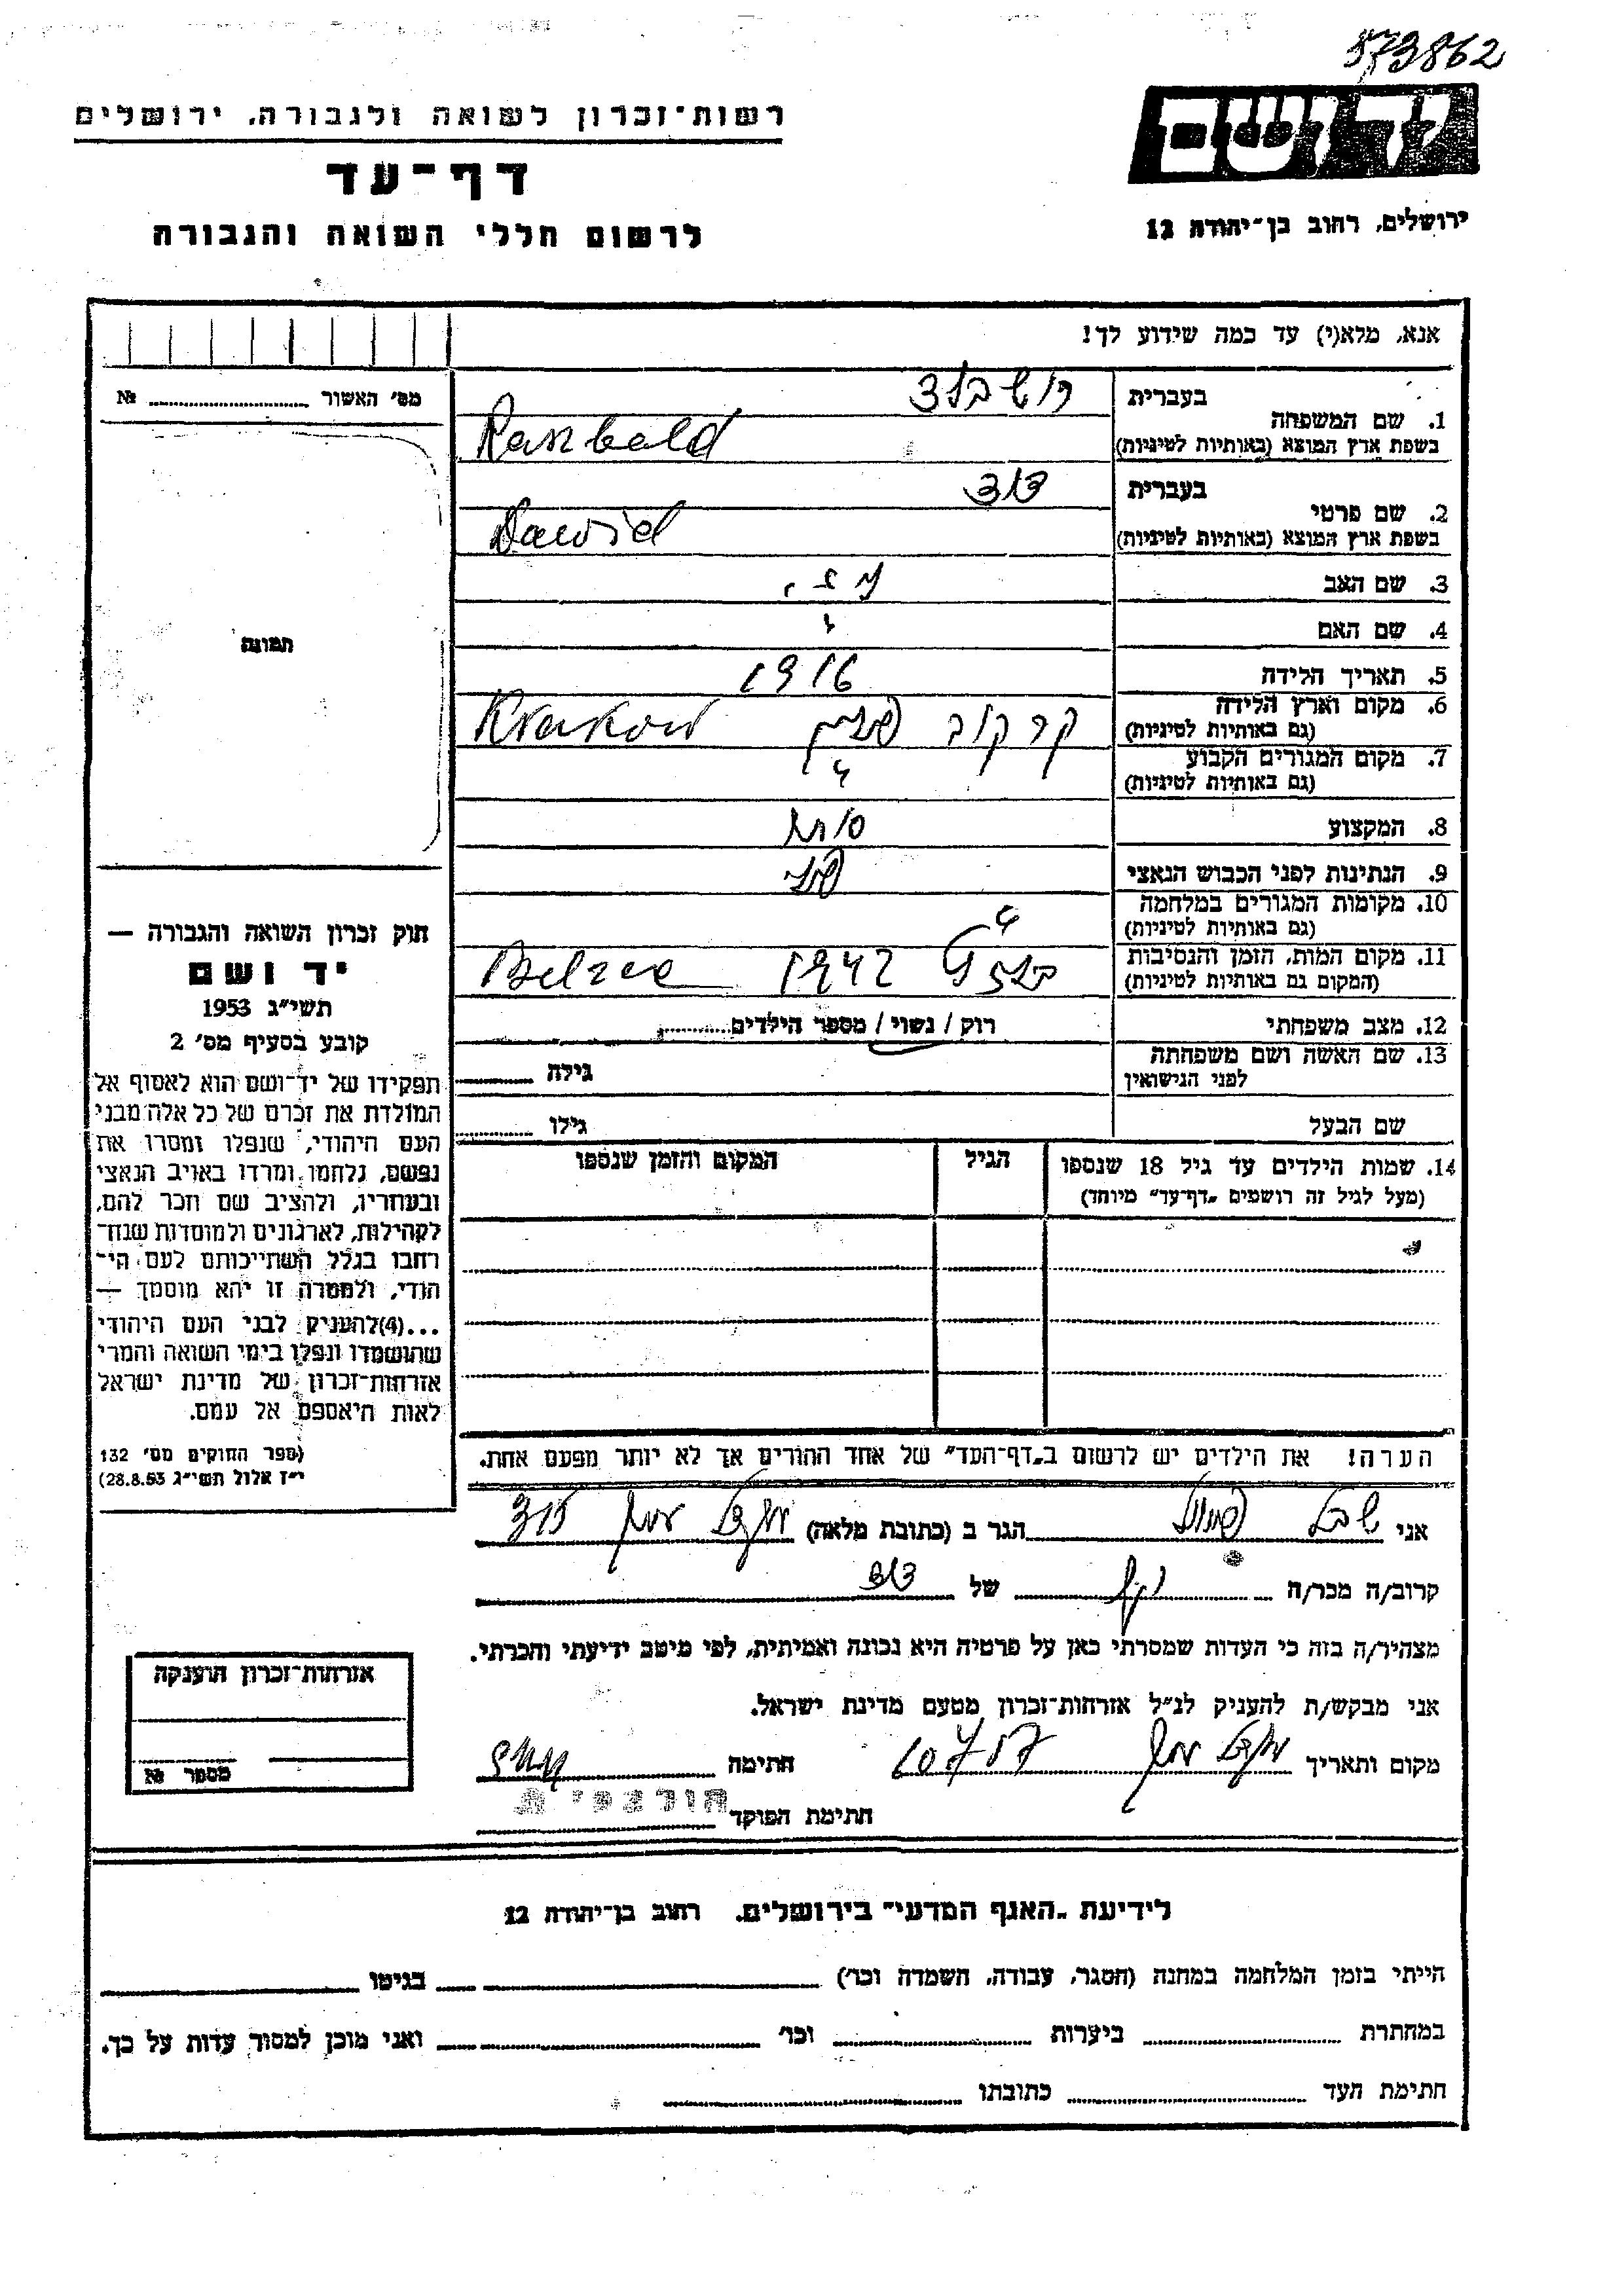 573862
רשות־זכרון לשואה ולגבורה, ירושלים
דף־עד
לרשום חללי השואה והגבורה
ירושלים, רחוב בן־יהודה 12
אנא, מלא(י) עד כמה שידוע לך!
מס׳ האשור № 
1. שם המשפחה
בעברית
בשפת ארץ המוצא (באותיות לטיניות)
2. שם פרטי
בעברית דוד
בשפת ארץ המוצא (באותיות לטיניות) Dawid
3. שם האב
4. שם האם
5. תאריך הלידה 1916
6. מקום וארץ הלידה קרקוב פולין Krakow
(גם באותיות לטיניות)
7. מקום המגורים הקבוע
(גם באותיות לטיניות)
8. המקצוע סוחר
9. הנתינות לפני הכבוש הנאצי פולני
10. מקומות המגורים במלחמה
(גם באותיות לטיניות)
11. מקום המות, הזמן והנסיבות 1942 Belzec
(המקום גם באותיות לטיניות)
12. מצב משפחתי רוק / נשוי / מספר הילדים
13. שם האשה ושם משפחתה גילה
לפני הנישואין
שם הבעל גילו
14. שמות הילדים עד גיל 18 שנספו הגיל המקום והזמן שנספו
(מעל לגיל זה רושמים „דף־עד״ מיוחד)
הערה! את הילדים יש לרשום ב„דף־העד״ של אחד ההורים אך לא יותר מפעם אחת.
תמונה
חוק זכרון השואה והגבורה —
יד ושם
תשי״ג 1953
קובע בסעיף מס׳ 2
תפקידו של יד־ושם הוא לאסוף אל
המולדת את זכרם של כל אלה מבני
העם היהודי, שנפלו ומסרו את
נפשם, נלחמו ומרדו באויב הנאצי
ובעוזריו, ולהציב שם וזכר להם,
לקהילות, לארגונים ולמוסדות שנח־
רבו בגלל השתייכותם לעם הי־
הודי, ולמטרה זו יהא מוסמך —
...(4)להעניק לבני העם היהודי
שהושמדו ונפלו בימי השואה והמרי
אזרחות־זכרון של מדינת ישראל
לאות היאספם אל עמם.
(ספר החוקים מס׳ 132
י״ז אלול תשי״ג 28.8.53)
אני הגר ב (כתובת מלאה)
קרוב/ה מכר/ה של דוד
מצהיר/ה בזה כי העדות שמסרתי כאן על פרטיה היא נכונה ואמיתית, לפי מיטב ידיעתי והכרתי.
אני מבקש/ת להעניק לנ״ל אזרחות־זכרון מטעם מדינת ישראל.
מקום ותאריך חתימה
חתימת הפוקד
אזרחות־זכרון הוענקה
מספר №
לידיעת „האגף המדעי״ בירושלים, רחוב בן־יהודה 12
הייתי בזמן המלחמה במחנה (הסגר, עבודה, השמדה וכו׳) בגיטו
במחתרת ביערות וכו׳ ואני מוכן למסור עדות על כך.
חתימת העד כתובתו